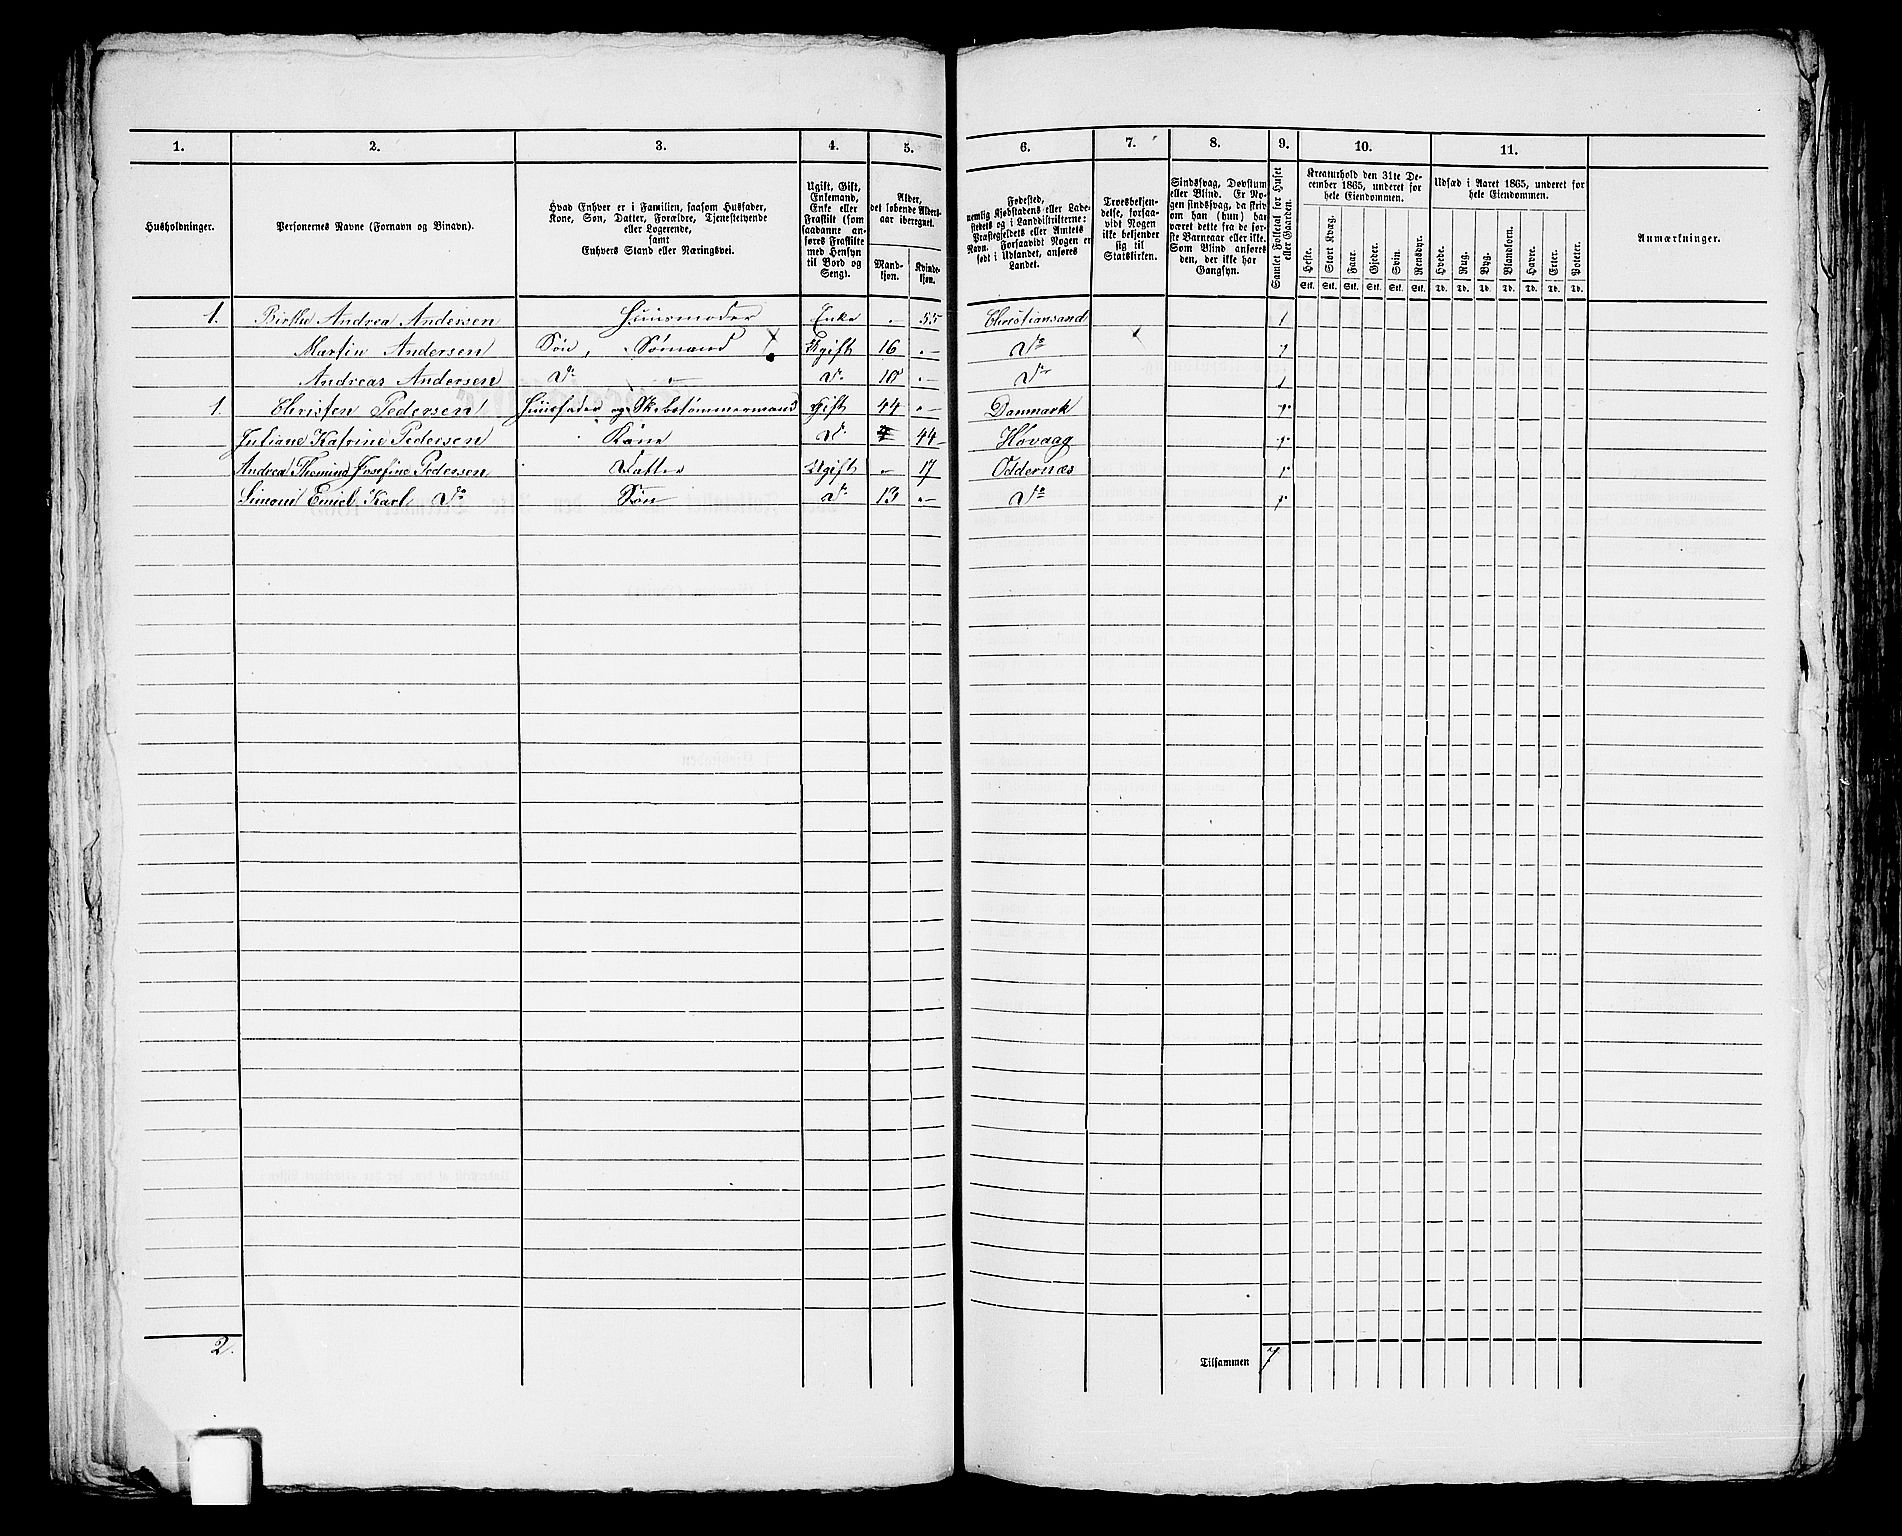 1. 2. 3. 4. 5. 6. 7. 8. 9. 10. 11.
Husholdninger.
Personernes Navne (Fornavn og Binavn).
Hvad Enhver er i Familien, saasom Husfader,
Kone, Søn, Datter, Forældre, Tjenestetyende
eller Logerende,
samt
Enhvers Stand eller Næringsvei.
Ugift, Gift,
Enkemand,
Enke eller
Fraskilt (som
saadanne an-
føres Fraskilte
med Hensyn
til Bord og
Seng).
Alder,
det løbende Alders-
aar iberegnet.
Mand-
kjøn.
Kvinde-
kjøn.
Fødested,
nemlig Kjøbstadens eller Lade-
stedets og i Landdistrikterne:
Præstegjeldets eller Amtets
Navn. Forsaavidt Nogen er
født i Udlandet, anføres
Landet.
Troesbekjen-
delse, forsaa-
vidt Nogen
ikke bekjender
sig til
Statskirken.
Sindssvag, Døvstum
eller Blind. Er No-
gen sindssvag, da skriv
om han (hun) har
været dette fra de før-
ste Barneaar eller ikke.
Som Blind anføres
den, der ikke har
Gangsyn.
Samlet Folketal for Huset
eller Gaarden.
Kreaturhold den 31te De-
cember 1865, underet for
hele Eiendommen.
Heste. Stort Kvæg. Faar. Gjeder. Svin. Rensdyr.
Stk. Stk. Stk. Stk. Stk. Stk.
Udsæd i Aaret 1865, underet for
hele Eiendommen.
Hvede. Rug. Byg. Blandkorn. Havre. Erter. Poteter.
Td. Td. Td. Td. Td. Td. Td.
Anmærkninger.
1. Andrea Andersen Huusmoder Enke - 55 Christiansand 1
Martin Andersen Søn, Sømand Ugift 16 - Do 1
Andreas Andersen Do Do 10 - Do 1
1. Christen Pedersen Huusfader og Skibstømmermand gift 44 - Danmark 1
Juliane Katrine Pedersen Kone Do 44 Høvaag 1
Andrea Josefine Pedersen Datter Ugift - 17 Oddernæs 1
Simon Emiel Karl Do Søn Do 13 - Do 1
2.
Tilsammen 7